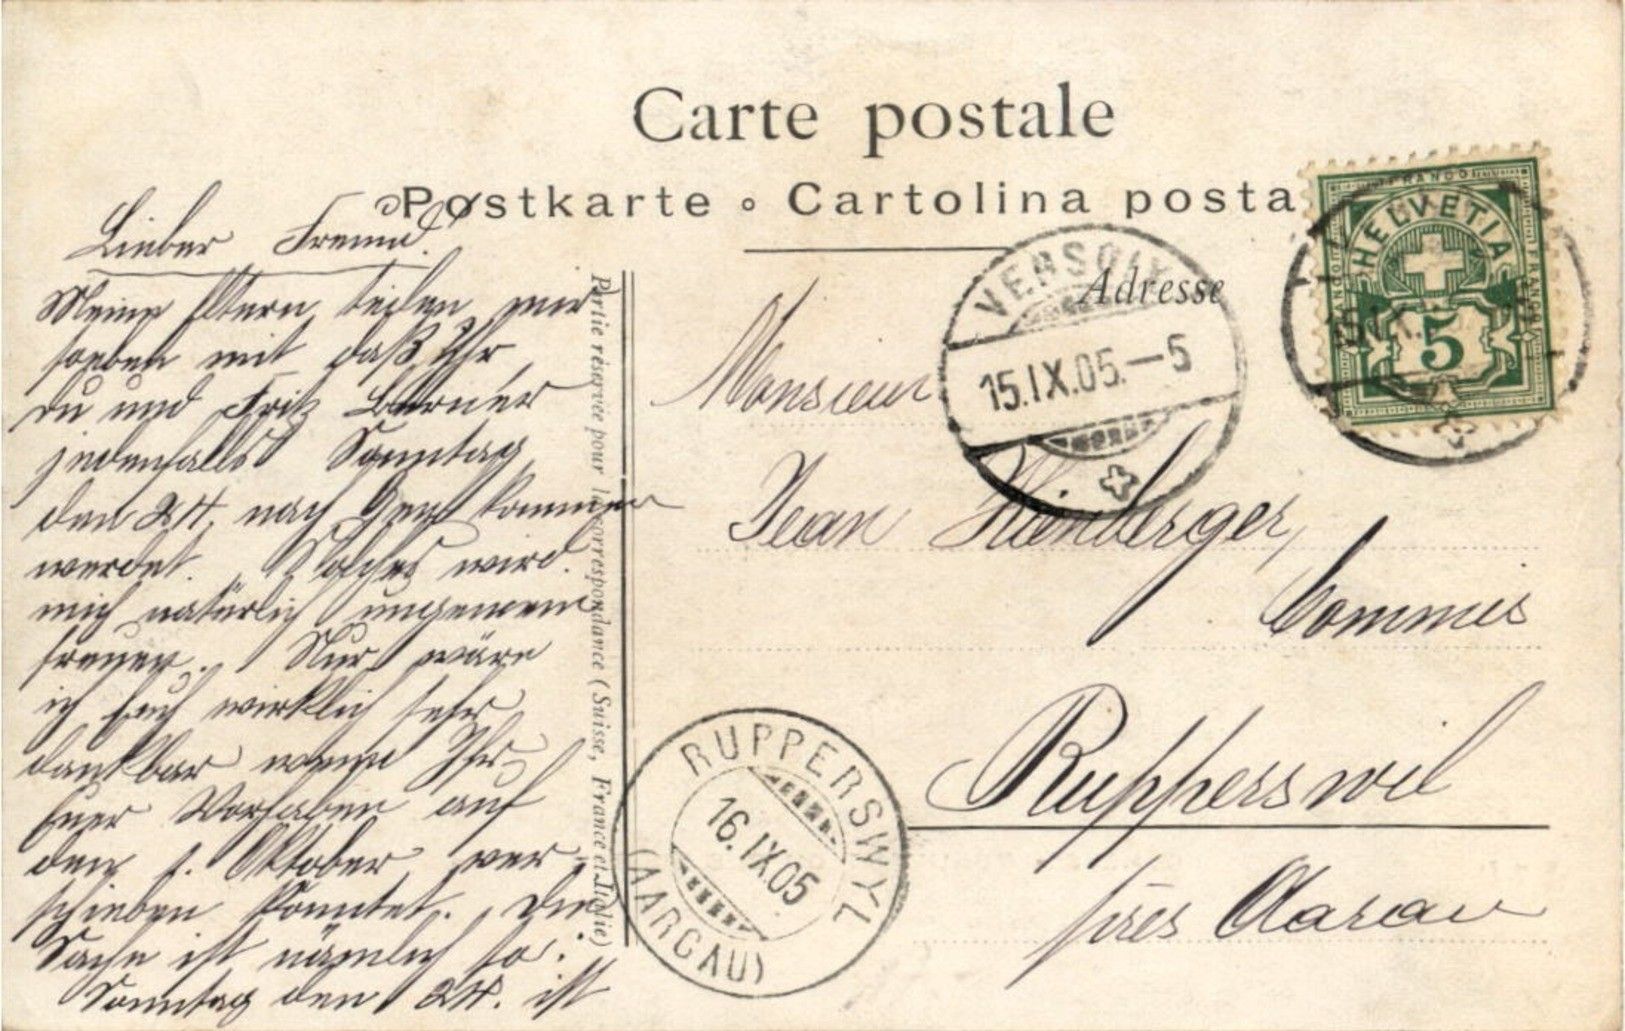 Carte postale
Postkarte ∘ Cartolina posta
Adresse
Partie réservée pour la correspondance (Suisse, France et Italie)
Lieber Freund.
Meine Eltern teilen mir
soeben mit daß Ihr,
du und Fritz
jedenfalls Sonntag
den 24. nach Genf kommen
werdet. Solches wird
mich natürlich ungemein
freuen. Nur wäre
ich Euch wirklich sehr
dankbar wenn Ihr
Euer Vorhaben auf
den 1. Oktober ver-
schieben könntet. Die
Sache ist nämlich so:
Sonntag den 24. ist
Monsieur
Jean
Commis
Rupperswil
près Aarau
VERSOIX
15.IX.05.–5
FRANCO
HELVETIA
5
RUPPERSWYL
16.IX05
(AARGAU)